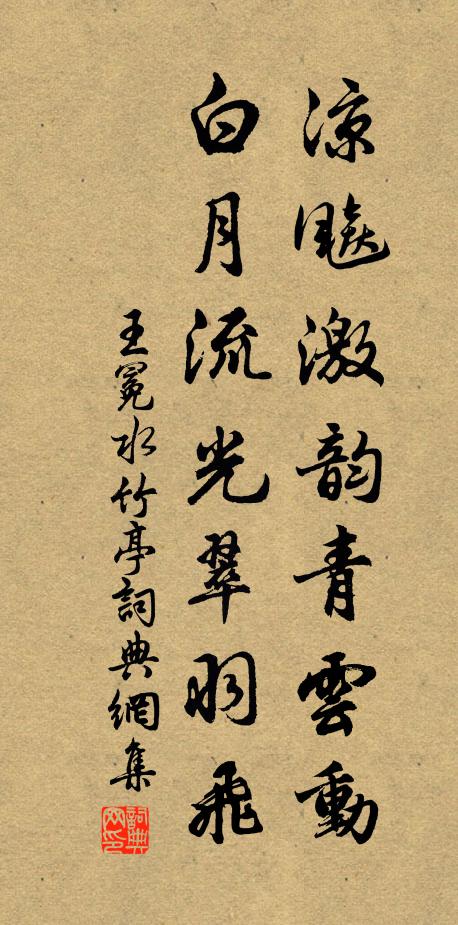 涼飈激韵青雲動
白月流光翠羽飛
王冕水竹亭詞典網集
詞典網印